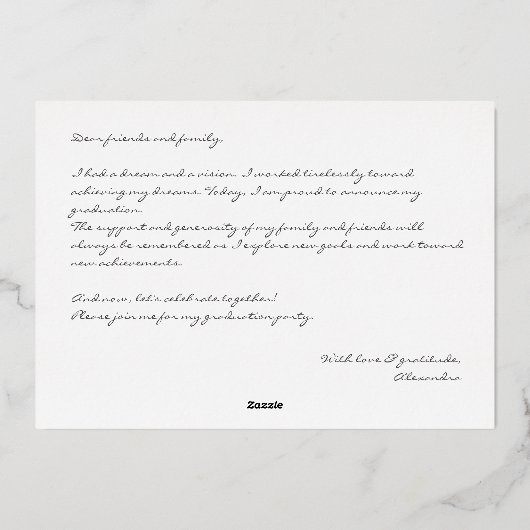 Dear friends and family,
I had a dream and a vision. I worked tirelessly toward
achieving my dreams. Today, I am proud to announce my
graduation.
The support and generosity of my family and friends will
always be remembered as I explore new goals and work toward
new achievements.
And now, let's celebrate together!
Please join me for my graduation party.
With love & gratitude,
Alexandra
Zazzle